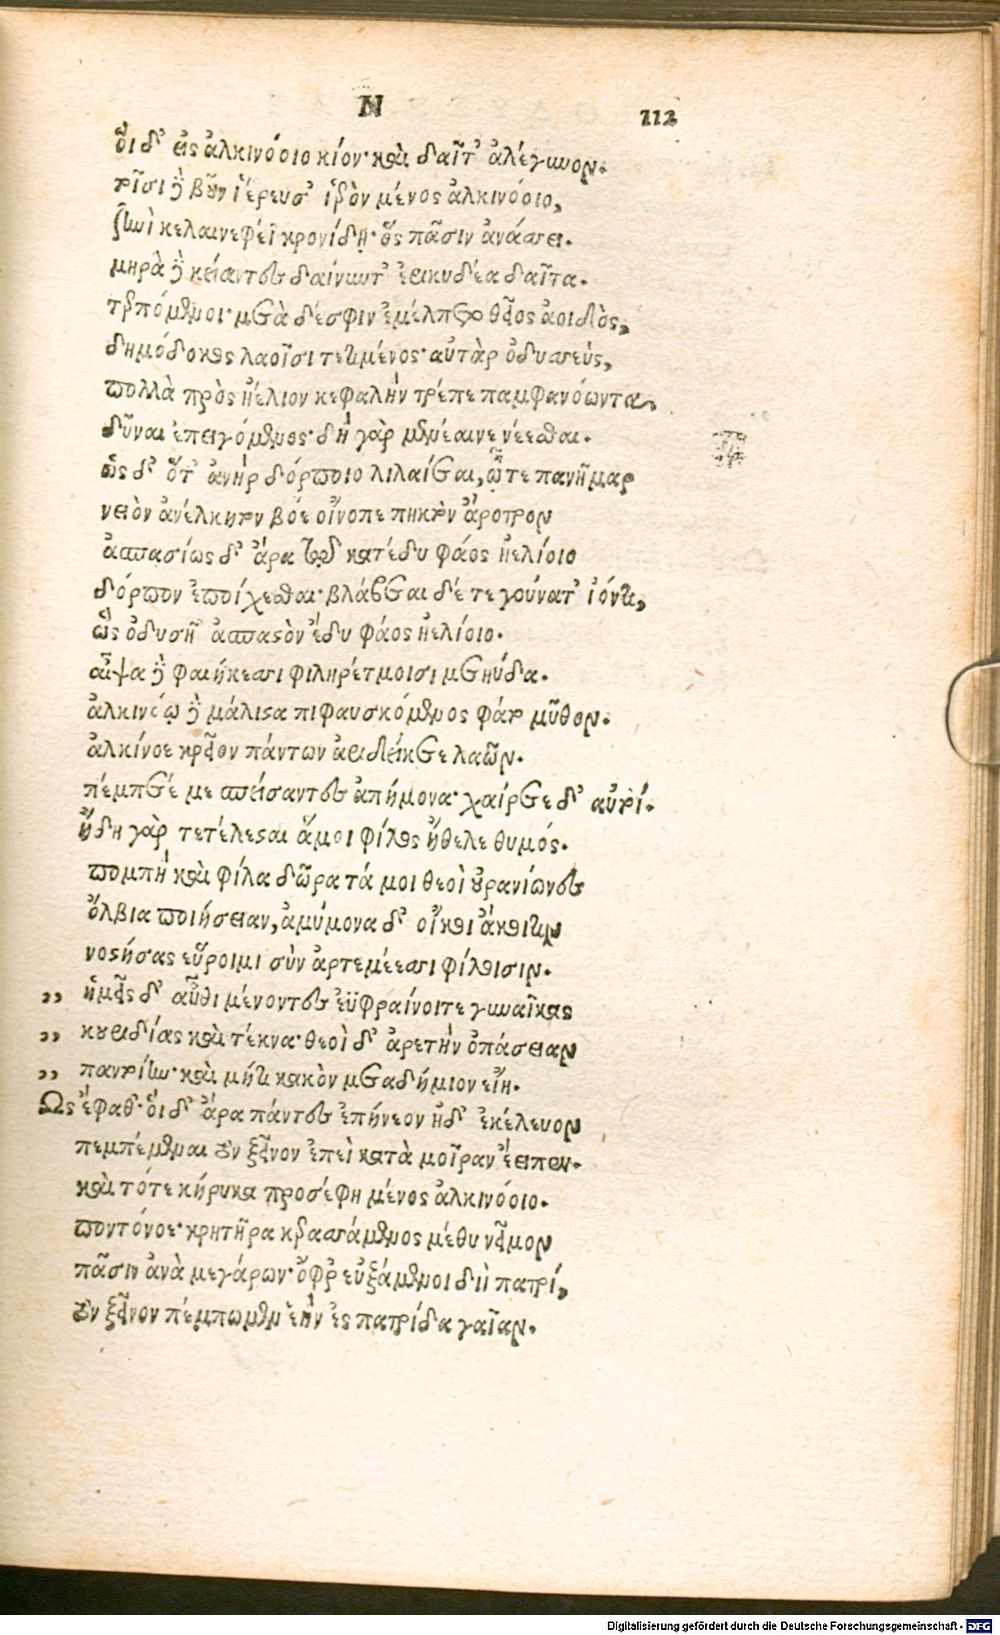 Ν
112
ὅι δ' εἰς ἀλκινόοιο κίον· καὶ δαῖτ' ἀλέγυνον.
τοῖσι δὲ βοῦν ἱέρευσ' ἱερὸν μένος ἀλκινόοιο,
ζηνὶ κελαινεφέϊ κρονίδῃ· ὃς πᾶσιν ἀνάσσει.
μηρὰ δὲ κείαντες δαίνυντ' ἐρικυδέα δαῖτα.
τερπόμενοι· μετὰ δέ σφιν ἐμέλπετο θεῖος ἀοιδὸς,
δημόδοκος λαοῖσι τετιμένος· αὐτὰρ ὀδυσσεὺς,
πολλὰ πρὸς ἠέλιον κεφαλὴν τρέπε παμφανόωντα,
δῦναι ἐπειγόμενος· δὴ γὰρ μενέαινε νέεσθαι.
ὡς δ' ὅτ' ἀνὴρ δόρποιο λιλαίεται, ᾧτε πανῆμαρ
νειὸν ἀνέλκητον βόε οἴνοπε πηκτὸν ἄροτρον
ἀσπασίως δ' ἄρα τῷ κατέδυ φάος ἠελίοιο
δόρπον ἐποίχεσθαι· βλάβεται δέ τε γούνατ' ἰόντι,
ὣς ὀδυσῆ' ἀσπαστὸν ἔδυ φάος ἠελίοιο.
αἶψα δὲ φαιήκεσσι φιληρέτμοισι μετηύδα.
ἀλκινόῳ δὲ μάλιστα πιφαυσκόμενος φάτο μῦθον.
ἀλκίνοε κρεῖον πάντων ἀριδείκετε λαῶν.
πέμπετέ με σπείσαντες ἀπήμονα· χαίρετε δ' αὐτοί.
ἤδη γὰρ τετέλεσται ἅ μοι φίλος ἤθελε θυμός.
πομπὴ καὶ φίλα δῶρα τά μοι θεοὶ οὐρανίωνες
ὄλβια ποιήσειαν, ἀμύμονα δ' οἴκοι ἄκοιτιν
νοστήσας εὕροιμι σὺν ἀρτεμέεσσι φίλοισιν.
,, ἡμεῖς δ' αὖθι μένοντες ἐϋφραίνοιτε γυναῖκας
,, κουριδίας καὶ τέκνα· θεοὶ δ' ἀρετὴν ὀπάσειαν
,, παντοίην· καὶ μήτι κακὸν μεταδήμιον εἴη.
Ὣς ἔφαθ'· ὅι δ' ἄρα πάντες ἐπήνεον ἠδ' ἐκέλευον
πεμπέμεναι τὸν ξεῖνον ἐπεὶ κατὰ μοῖραν ἔειπεν.
καὶ τότε κήρυκα προσέφη μένος ἀλκινόοιο.
ποντόνοε· κρητῆρα κερασσάμενος μέθυ νεῖμον
πᾶσιν ἀνὰ μεγάρων· ὄφρ' εὐξάμενοι διὶ πατρί,
τὸν ξεῖνον πέμπωμεν ἑὴν ἐς πατρίδα γαῖαν.
Digitalisierung gefördert durch die Deutsche Forschungsgemeinschaft - DFG